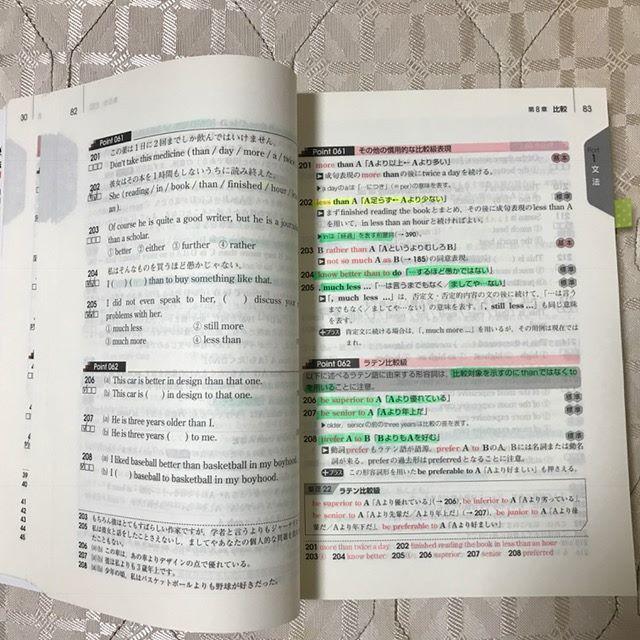 82
Point 061
201 この薬は1日に2回までしか飲んではいけません。
Don't take this medicine (than / day / more / a / twice
202 彼女はその本を1時間もしないうちに読み終えた。
She (reading / in / book / than / finished / hour /
an).
203 Of course he is quite a good writer, but he is a
than a scholar.
① better ② either ③ further ④ rather
204 私はそんなものを買うほど愚かじゃない。
I ( )( ) than to buy something like that.
205 I did not even speak to her, ( ) discuss
problems with her.
① much less ② still more
③ much more ④ less than
Point 062
206 (a) This car is better in design than that one.
(b) This car is ( ) in design to that one.
207 (a) He is three years older than I.
(b) He is three years ( ) to me.
208 (a) I liked baseball better than basketball in my boyhood.
(b) I ( ) baseball to basketball in my boyhood.
203 もちろん彼はとてもすばらしい作家ですが、学者と言うよりもジャー
205 私は彼女と話をしたことさえないし、ましてやあなたの個人的な問題を
たこともない。
206 (a)(b) この車は、あの車よりデザインの点で優れている。
207 (a)(b) 彼は私よりも3歳年上です。
208 (a)(b) 少年の頃、私はバスケットボールよりも野球が好きだった。
30
39
40
41
42
43
44
45
第8章 比較 83
Part 1 文法
Point 061 その他の慣用的な比較級表現
201 more than A「Aより以上←Aより多い」 基本
▶ 成句表現の more than の後に twice a day を続ける。
▶ a day の a は「…につき」(= per) の意味を表す。
202 less than A「A足らず←Aより少ない」 標準
▶ まず finished reading the book とまとめ、その後に成句表現の less than A
を用いて、in less than an hour と続ければよい。
▶ in は「経過」を表す前置詞(→ 390)。
203 B rather than A「AというよりむしろB」 基本
▶ not so much A as B (→ 185) の同意表現。
204 know better than to do「…するほど愚かではない」 標準
205 , much less …「…は言うまでもなく、ましてや…ない」 標準
▶「, much less …」は、否定文・否定的内容の文の後に続けて、「…は言う
までもなく/ましてや…ない」の意味を表す。「, still less …」も同じ意味
を表す。
プラス 肯定文に続ける場合は、「, much more …」を用いるが、その用例は現在では
まれ。
Point 062 ラテン比較級
以下に述べるラテン語に由来する形容詞は、比較対象を示すのに than ではなく to
を用いることに注意。
206 be superior to A「Aより優れている」 標準
207 be senior to A「Aより年上だ」 標準
▶ older、senior の前の three years は比較の差を表す。
208 prefer A to B「BよりもAを好む」 標準
▶ 動詞 prefer もラテン語が語源。prefer A to B の A、B には名詞または動名
詞が来る。prefer の過去形は preferred となることに注意。
プラス この形容詞形を用いた be preferable to A「Aより好ましい」も押さえる。
整理 22 ラテン比較級
be superior to A「Aより優れている」(→ 206)、be inferior to A「Aより劣っている」
be senior to A「Aより先輩だ/Aより年上だ」(→ 207)、be junior to A「Aより後
輩だ/Aより年下だ」、be preferable to A「Aより好ましい」
201 more than twice a day 202 finished reading the book in less than an hour
203 ④ 204 know better 205 ① 206 superior 207 senior 208 preferred